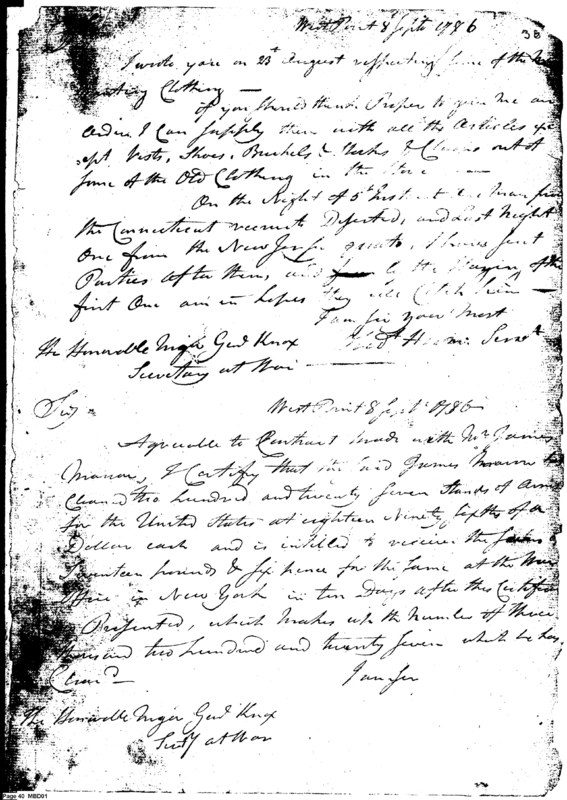 38
West Point 8th Septr 1786
I wrote you on 23d August respecting some of the
Clothing —
if you should think Proper to give me an
order I can supply them with all the Articles ex
cept Vests, Shoes, Buckels, & out of
some of the Old Clothing in the Store —
On the Night of 5th Instant one man from
the Connecticut recruits Deserted, and last Night
One from the New Jersey I have sent
Parties after them, and by the of the
first One am in hopes they will Catch him —
I am Sir your Most
Obedt Hbm. Servt
The Honorable Major Genl Knox
Secretary at War
Sir
West Point 8 Sept 1786
Agreeable to Contract made with Mr James
I Certify that the said James
Cleaned two hundred and twenty Seven Stands of Arms
for the United States at eighteen Ninety Sixths of a
Dollar each and is intitled to receive the
Seventeen pounds & Six pence for the Same at the War
Office in New York in ten Days after this Certificate
Presented, which makes up the Number of three
thousand two hundred and twenty Seven which he has
Clean'd
I am Sir
The Honorable Major Genl Knox
Secty at War
Page 40 MBD01